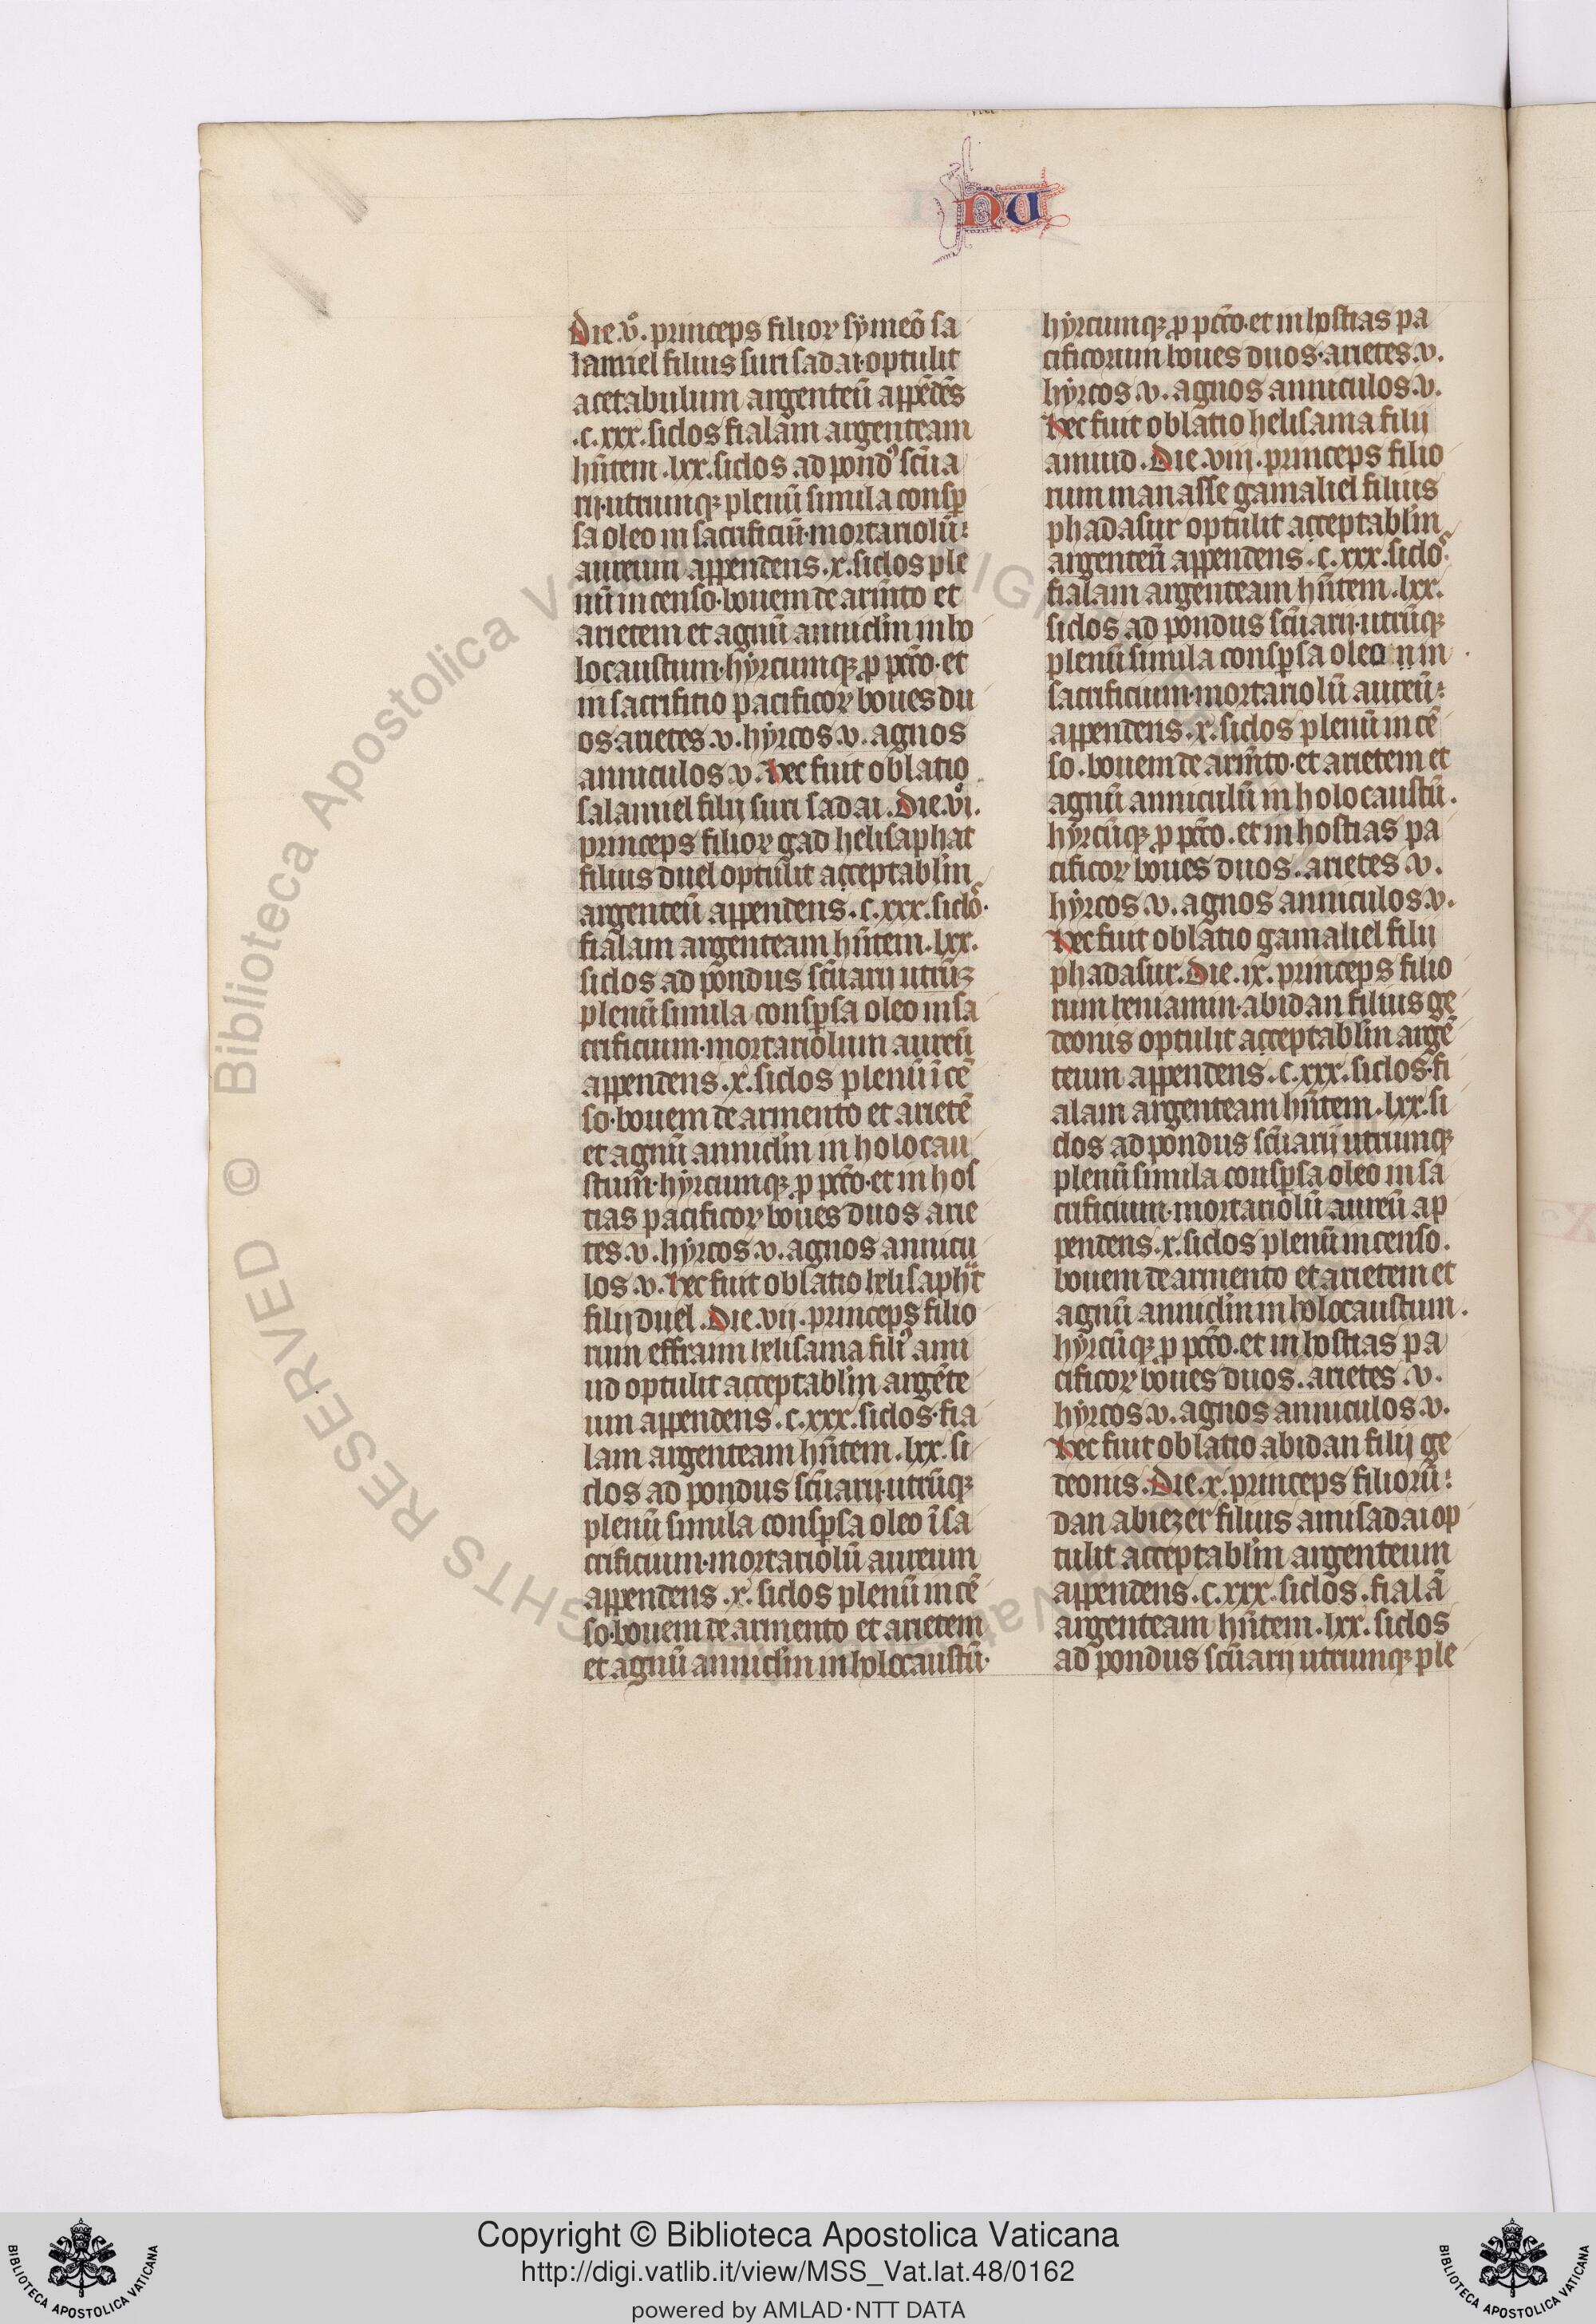 NU
Die .vͦ. princeps filioꝝ sẏmeõ sa
lamiel filius suri sadai·optulit
acetabulum argenteũ appẽdẽs
.c.xxx. siclos fialam argenteam
hñtem .lxx. siclos ad pondꝰ scũa
rij·utrumqꝫ plenũ simila consꝑ
sa oleo in sacrificiũ·mortariolũ
aureum appendens .x. siclos ple
nũ incenso·bouem de arm̃to et
arietem et agnũ anniclm̃ in ho
locaustum·hẏrcumqꝫ ꝓ pctõ·et
in sacrifitio pacificoꝝ boues du
os arietes .v. hẏrcos .v. agnos
anniculos .v. hec fuit oblatio
salamiel filij suri sadai. Die .vͦi.
princeps filioꝝ gad helisaphat
filius duel optulit acceptablm̃
argenteũ appendens .c.xxx. siclos.
fialam argenteam hñtem .lxx.
siclos ad pondus scũarij utrũqꝫ
plenũ simila consꝑsa oleo in sa
crificium·mortariolum aureũ
appendens .x. siclos plenũ ĩcẽ
so·bouem de armento et arietẽ
et agnũ anniclm̃ in holocau
stum·hẏrcumqꝫ ꝓ pctõ·et in hos
tias pacificoꝝ boues duos arie
tes .v. hẏrcos .v. agnos annicu
los .v. hec fuit oblatio helisapht̃
filij duel. Die .vii. princeps filio
rum effraim helisama filiꝰ ami
ud optulit acceptablm̃ argẽte
um appendens .c.xxx. siclos·fia
lam argenteam hñtem .lxx. si
clos ad pondus scũarij·utrũqꝫ
plenũ simila consꝑsa oleo ĩ sa
crificium·mortariolũ aureum
appendens .x. siclos plenũ incẽ
so·bouem de armento et arietem
et agnũ anniclm̃ in holocaustũ·
hẏrcumqꝫ ꝓ pctõ·et in hostias pa
cificorum boues duos·arietes .v.
hẏrcos .v. agnos anniculos .v.
hec fuit oblatio helisama filij
amiud. Die .viii. princeps filio
rum manasse gamaliel filius
phadasur optulit acceptablm̃
argenteũ appendens .c.xxx. siclos.
fialam argenteam hñtem .lxx.
siclos ad pondus scũarij·utrũqꝫ
plenũ simila consꝑsa oleo in
sacrificium·mortariolũ aureũ
appendens .x. siclos plenũ incẽ
so. bouem de arm̃to·et arietem et
agnũ anniculũ in holocaustũ.
hẏrcũqꝫ ꝓ pctõ. et in hostias pa
cificoꝝ boues duos. arietes .v.
hẏrcos .v. agnos anniculos .v.
hec fuit oblatio gamaliel filij
phadasur. Die .ix. princeps filio
rum beniamin·abidan filius ge
deonis optulit acceptablm̃ argẽ
teum appendens .c.xxx. siclos·fi
alam argenteam hñtem .lxx. si
clos ad pondus scũarij utrumqꝫ
plenũ simila consꝑsa oleo in sa
crificium·mortariolũ aureũ ap
pendens .x. siclos plenũ incenso.
bouem de armento et arietem et
agnũ anniclm̃ in holocaustum.
hẏrcũqꝫ ꝓ pctõ. et in hostias pa
cificoꝝ boues duos. arietes .v.
hẏrcos .v. agnos anniculos .v.
hec fuit oblatio abidan filij ge
deonis. Die .x. princeps filiorũ
dan abiezer filius amisadai op
tulit acceptablm̃ argenteum
appendens .c.xxx. siclos. fialã
argenteam hñtem .lxx. siclos
ad pondus scũarij utrumqꝫ ple
Copyright © Biblioteca Apostolica Vaticana
http://digi.vatlib.it/view/MSS_Vat.lat.48/0162
powered by AMLAD·NTT DATA
BIBLIOTECA APOSTOLICA VATICANA
BIBLIOTECA APOSTOLICA VATICANA